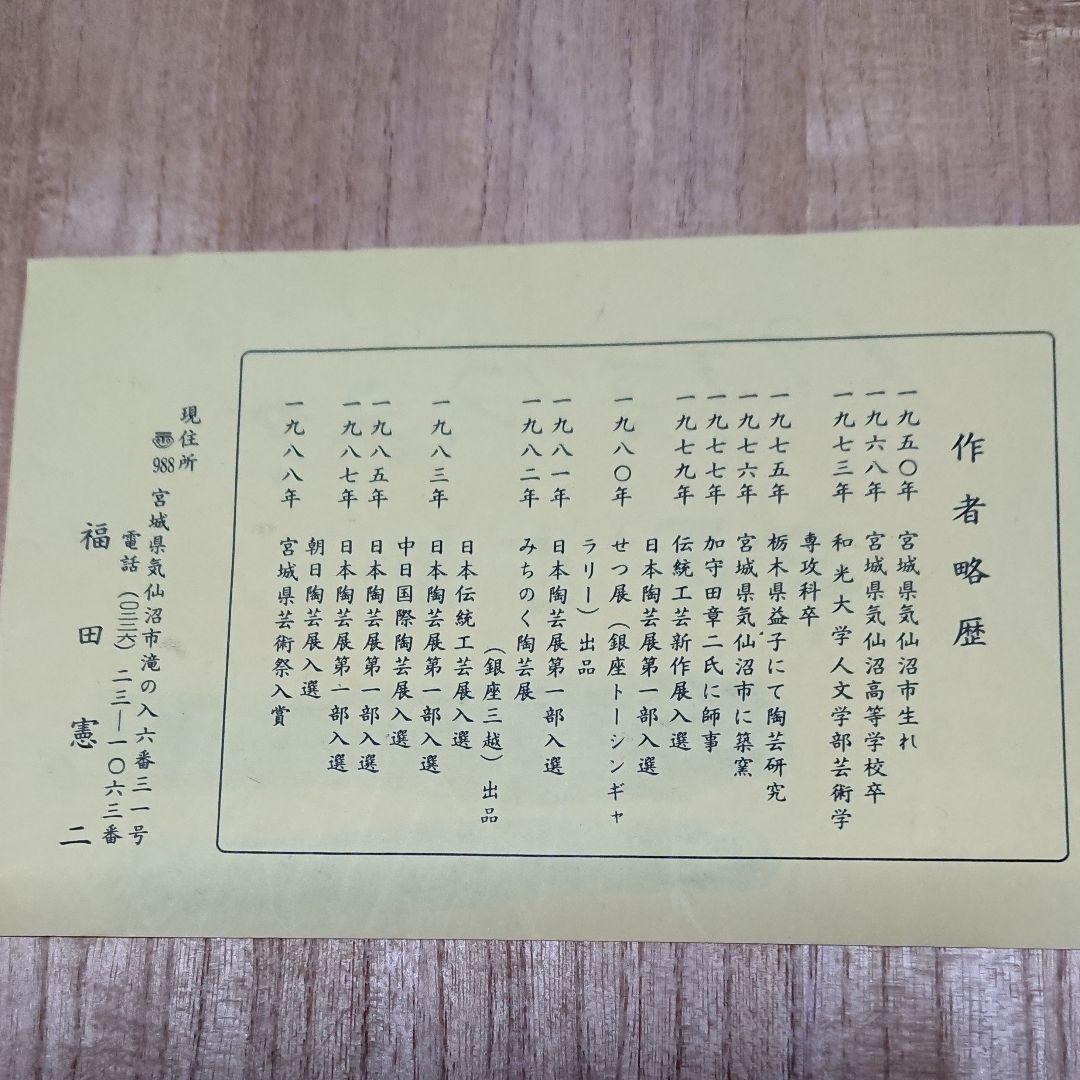 作者略歴
一九五〇年 宮城県気仙沼市生れ
一九六八年 宮城県気仙沼高等学校卒
一九七三年 和光大学人文学部芸術学
専攻科卒
一九七五年 栃木県益子にて陶芸研究
一九七六年 宮城県気仙沼市に築窯
一九七七年 加守田章二氏に師事
一九七九年 伝統工芸新作展入選
日本陶芸展第一部入選
一九八〇年 せつ展（銀座トーシンギャ
ラリー）出品
一九八一年 日本陶芸展第一部入選
一九八二年 みちのく陶芸展
（銀座三越）出品
日本伝統工芸展入選
一九八三年 日本陶芸展第一部入選
中日国際陶芸展入選
一九八五年 日本陶芸展第一部入選
一九八七年 日本陶芸展第一部入選
朝日陶芸展入選
一九八八年 宮城県芸術祭入賞
現住所
〒988 宮城県気仙沼市滝の入六番三一号
電話（〇二二六）二三―一〇六三番
福田憲二